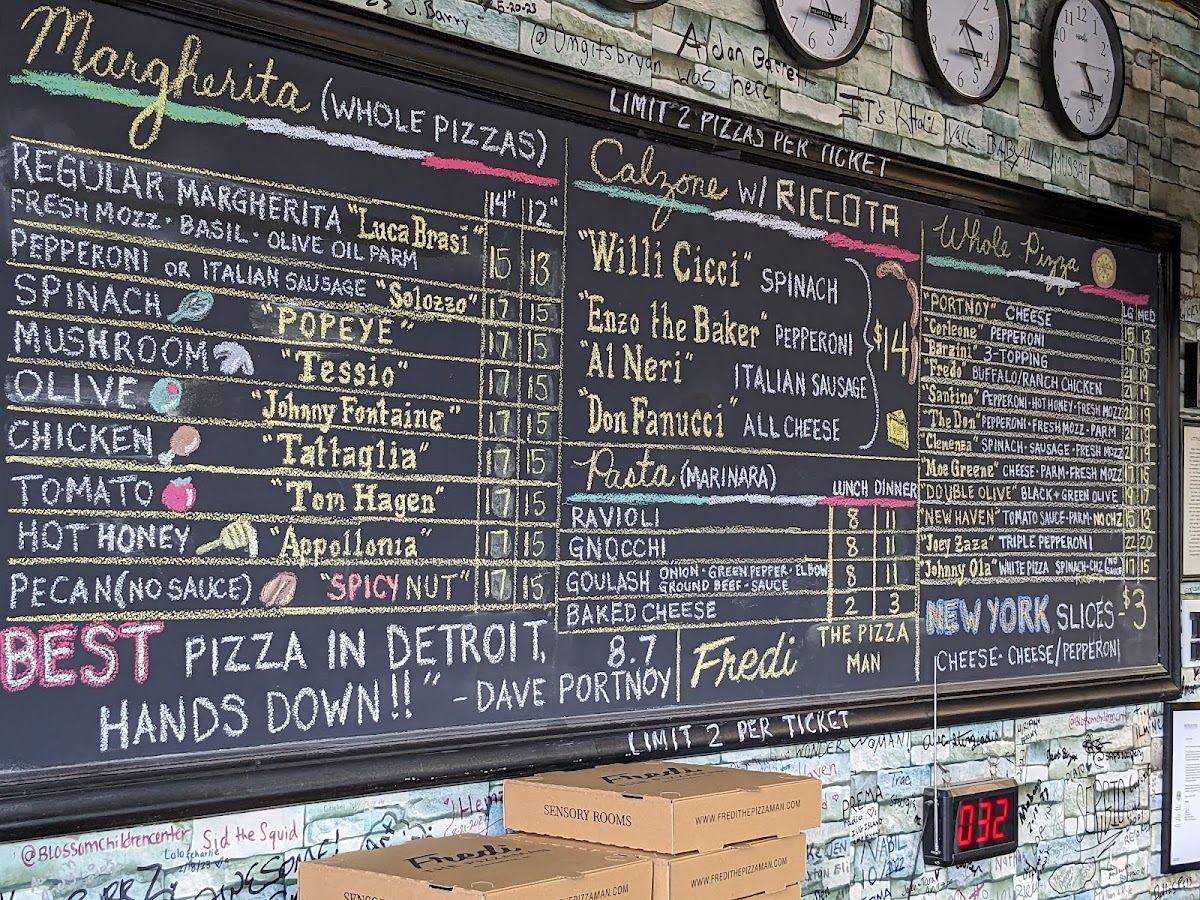 J. Barry 5-20-23
@Omgitsbryan was here
LIMIT 2 PIZZAS PER TICKET
Margherita (WHOLE PIZZAS)
14" 12"
REGULAR MARGHERITA "Luca Brasi" 15 13
FRESH MOZZ · BASIL · OLIVE OIL PARM
PEPPERONI OR ITALIAN SAUSAGE "Solozzo" 17 15
SPINACH "POPEYE" 17 15
MUSHROOM "Tessio" 17 15
OLIVE "Johnny Fontaine" 17 15
CHICKEN "Tattaglia" 17 15
TOMATO "Tom Hagen" 17 15
HOT HONEY "Appollonia" 17 15
PECAN (NO SAUCE) "SPICY NUT" 17 15
BEST PIZZA IN DETROIT,
HANDS DOWN!!" - DAVE PORTNOY
8.7
Calzone W/ RICCOTA
"Willi Cicci" SPINACH
"Enzo the Baker" PEPPERONI
"Al Neri" ITALIAN SAUSAGE
"Don Fanucci" ALL CHEESE
$14
Pasta (MARINARA) LUNCH DINNER
RAVIOLI 8 11
GNOCCHI 8 11
GOULASH ONION · GREEN PEPPER · ELBOW 8 11
GROUND BEEF · SAUCE
BAKED CHEESE 2 3
Fredi THE PIZZA
MAN
Whole Pizza
LG MED
"PORTNOY" CHEESE 15 13
"Corleone" PEPPERONI 17 15
"Barzini" 3-TOPPING 21 19
"Fredo" BUFFALO/RANCH CHICKEN 21 19
"Santino" PEPPERONI · HOT HONEY · FRESH MOZZ 21 19
"The Don" PEPPERONI · FRESH MOZZ · PARM 21 19
"Clemenza" SPINACH · SAUSAGE · FRESH MOZZ 21 19
"Moe Greene" CHEESE · PARM · FRESH MOZZ
"DOUBLE OLIVE" BLACK + GREEN OLIVE 19 17
"NEW HAVEN" TOMATO SAUCE · PARM · NO CHZ 15 13
"Joey Zaza" TRIPLE PEPPERONI 22 20
"Johnny Ola" WHITE PIZZA SPINACH · CHZ (NO SAUCE) 17 15
NEW YORK SLICES - $3
CHEESE · CHEESE/PEPPERONI
LIMIT 2 PER TICKET
Fredi
SENSORY ROOMS WWW.FREDITHEPIZZAMAN.COM
WWW.FREDITHEPIZZAMAN.COM
Fredi
032
@BLOSSOMCHILDRENCENTER Sid the Squid